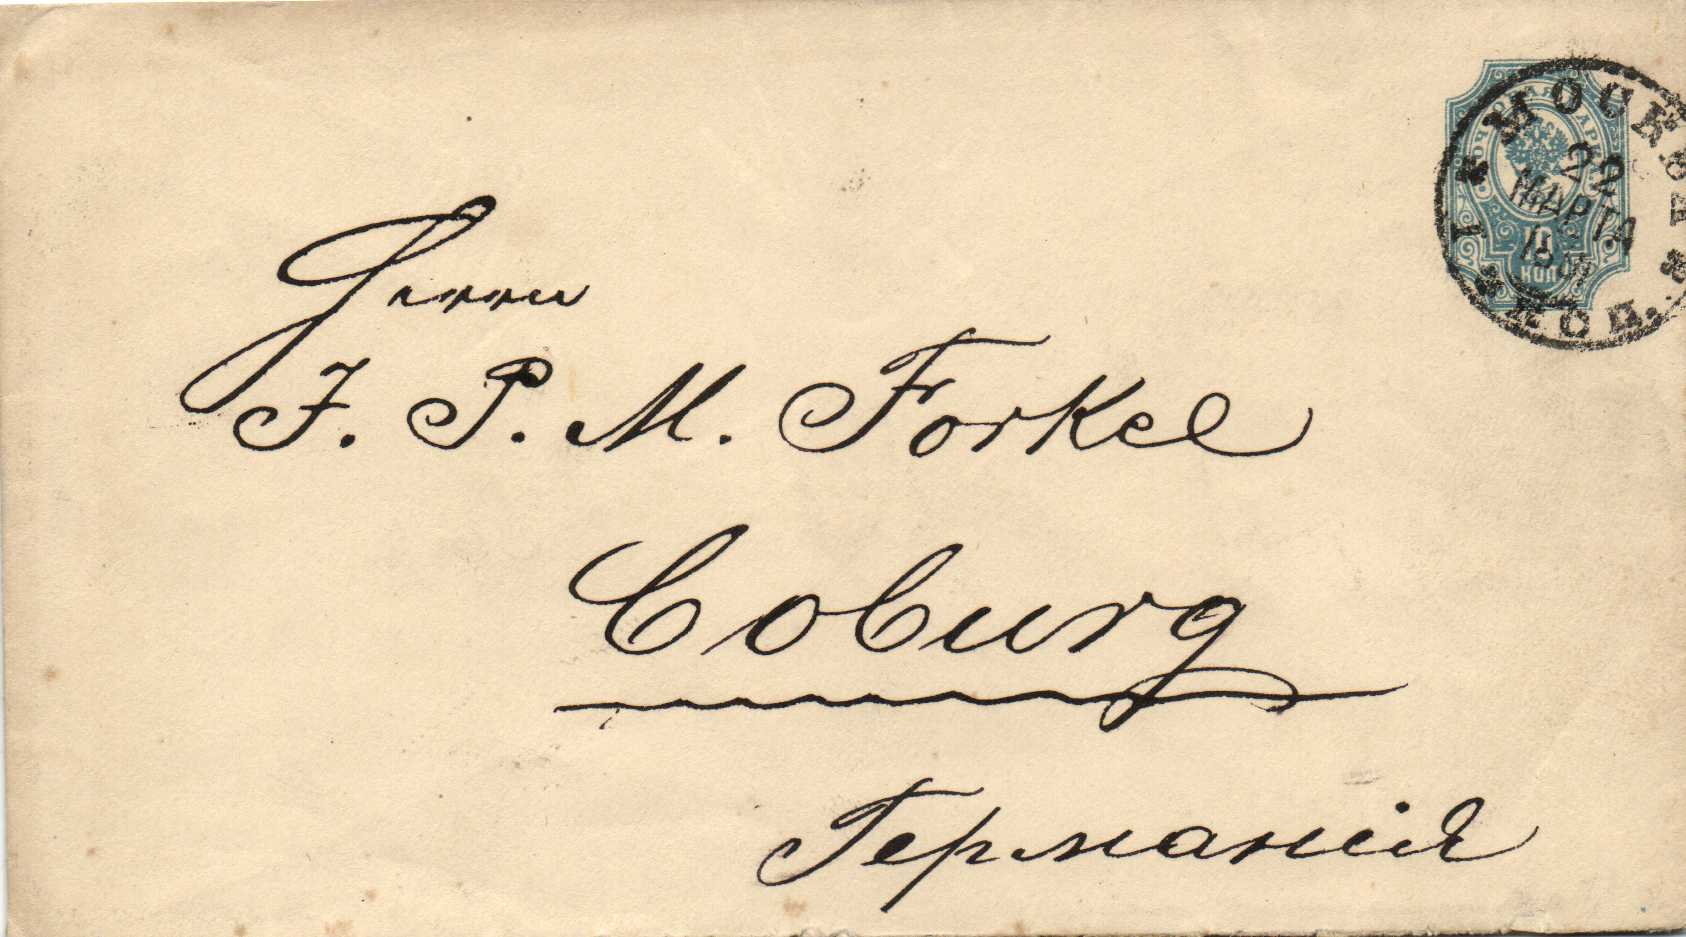 МОСКВА
22
МАРТА
10
КОП
1
ЭКСП.
Herrn
J. P. M. Forkel
Coburg
Германія